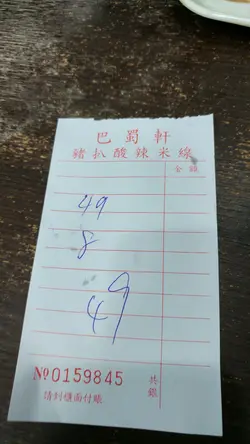 巴蜀軒
豬扒酸辣米線
金額
49
8
49
№0159845
共銀
請到櫃面付賬